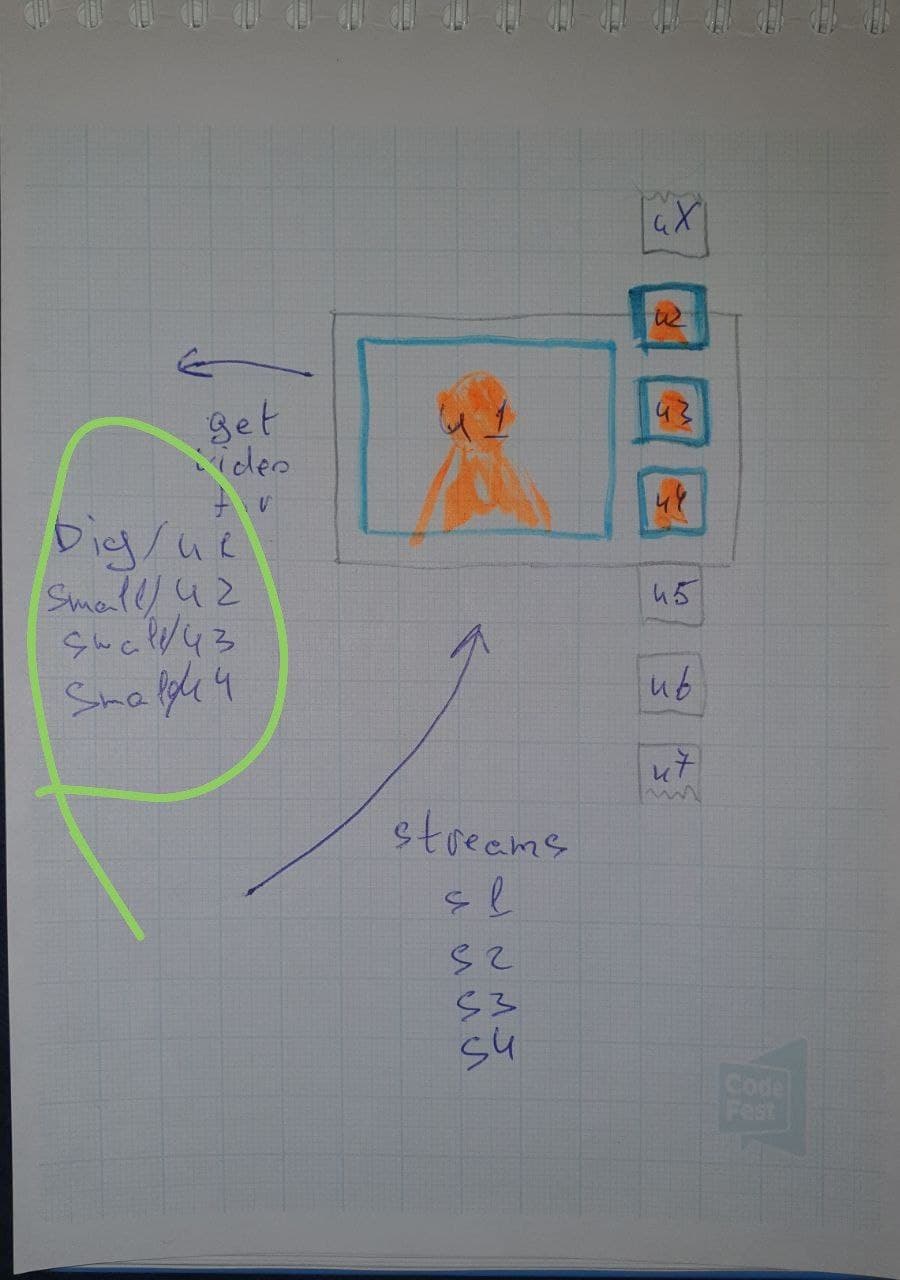 uX
u2
u3
u4
u 1
get
video
for
Big/u1
small/u2
small/u3
small/u4
u5
u6
u7
streams
s1
s2
s3
s4
Code
Fest